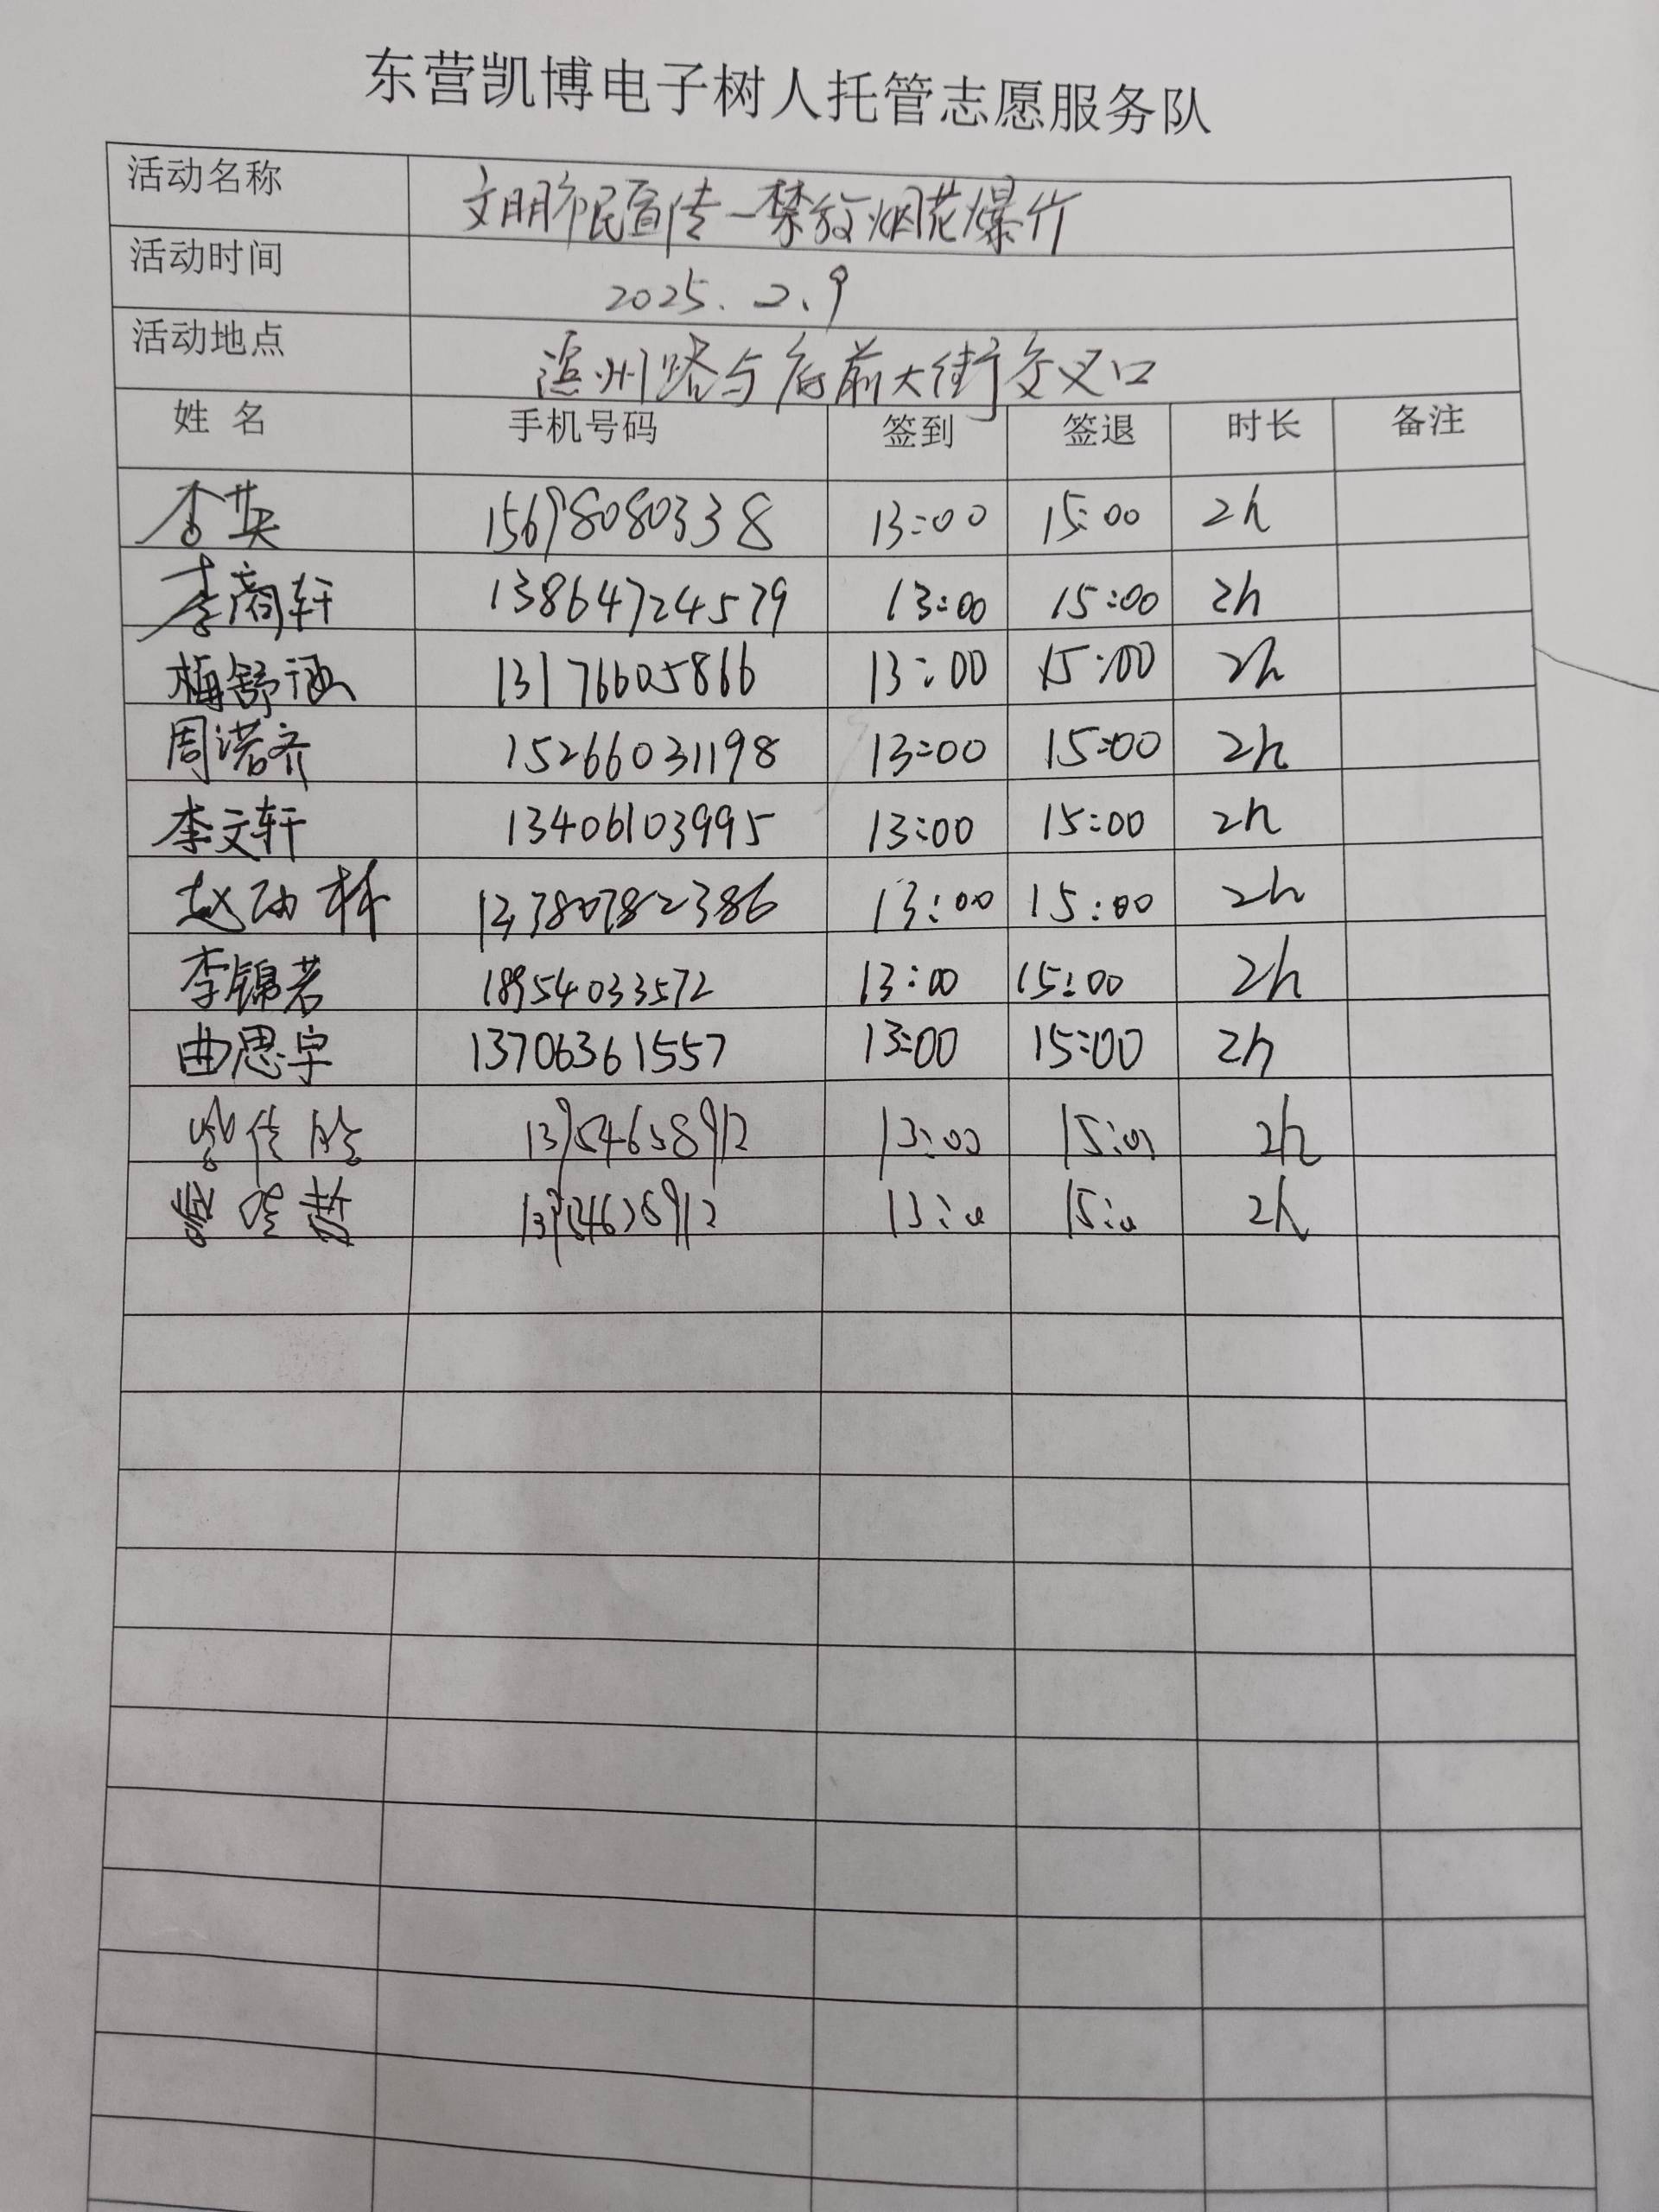 东营凯博电子树人托管志愿服务队
活动名称 文明市民宣传一禁放烟花爆竹
活动时间 2025.2.9
活动地点 滨州路与府前大街交叉口
姓 名 手机号码 签到 签退 时长 备注
李英 15698080338 13:00 15:00 2h
李商轩 13864724579 13:00 15:00 2h
梅舒涵 13176605866 13:00 15:00 2h
周诺齐 15266031198 13:00 15:00 2h
李文轩 13406103995 13:00 15:00 2h
赵 林 13:00 15:00 2h
李锦若 18954033572 13:00 15:00 2h
曲思宇 13706361557 13:00 15:00 2h
佳 13954658912 13:00 15:00 2h
13:00 15:00 2h